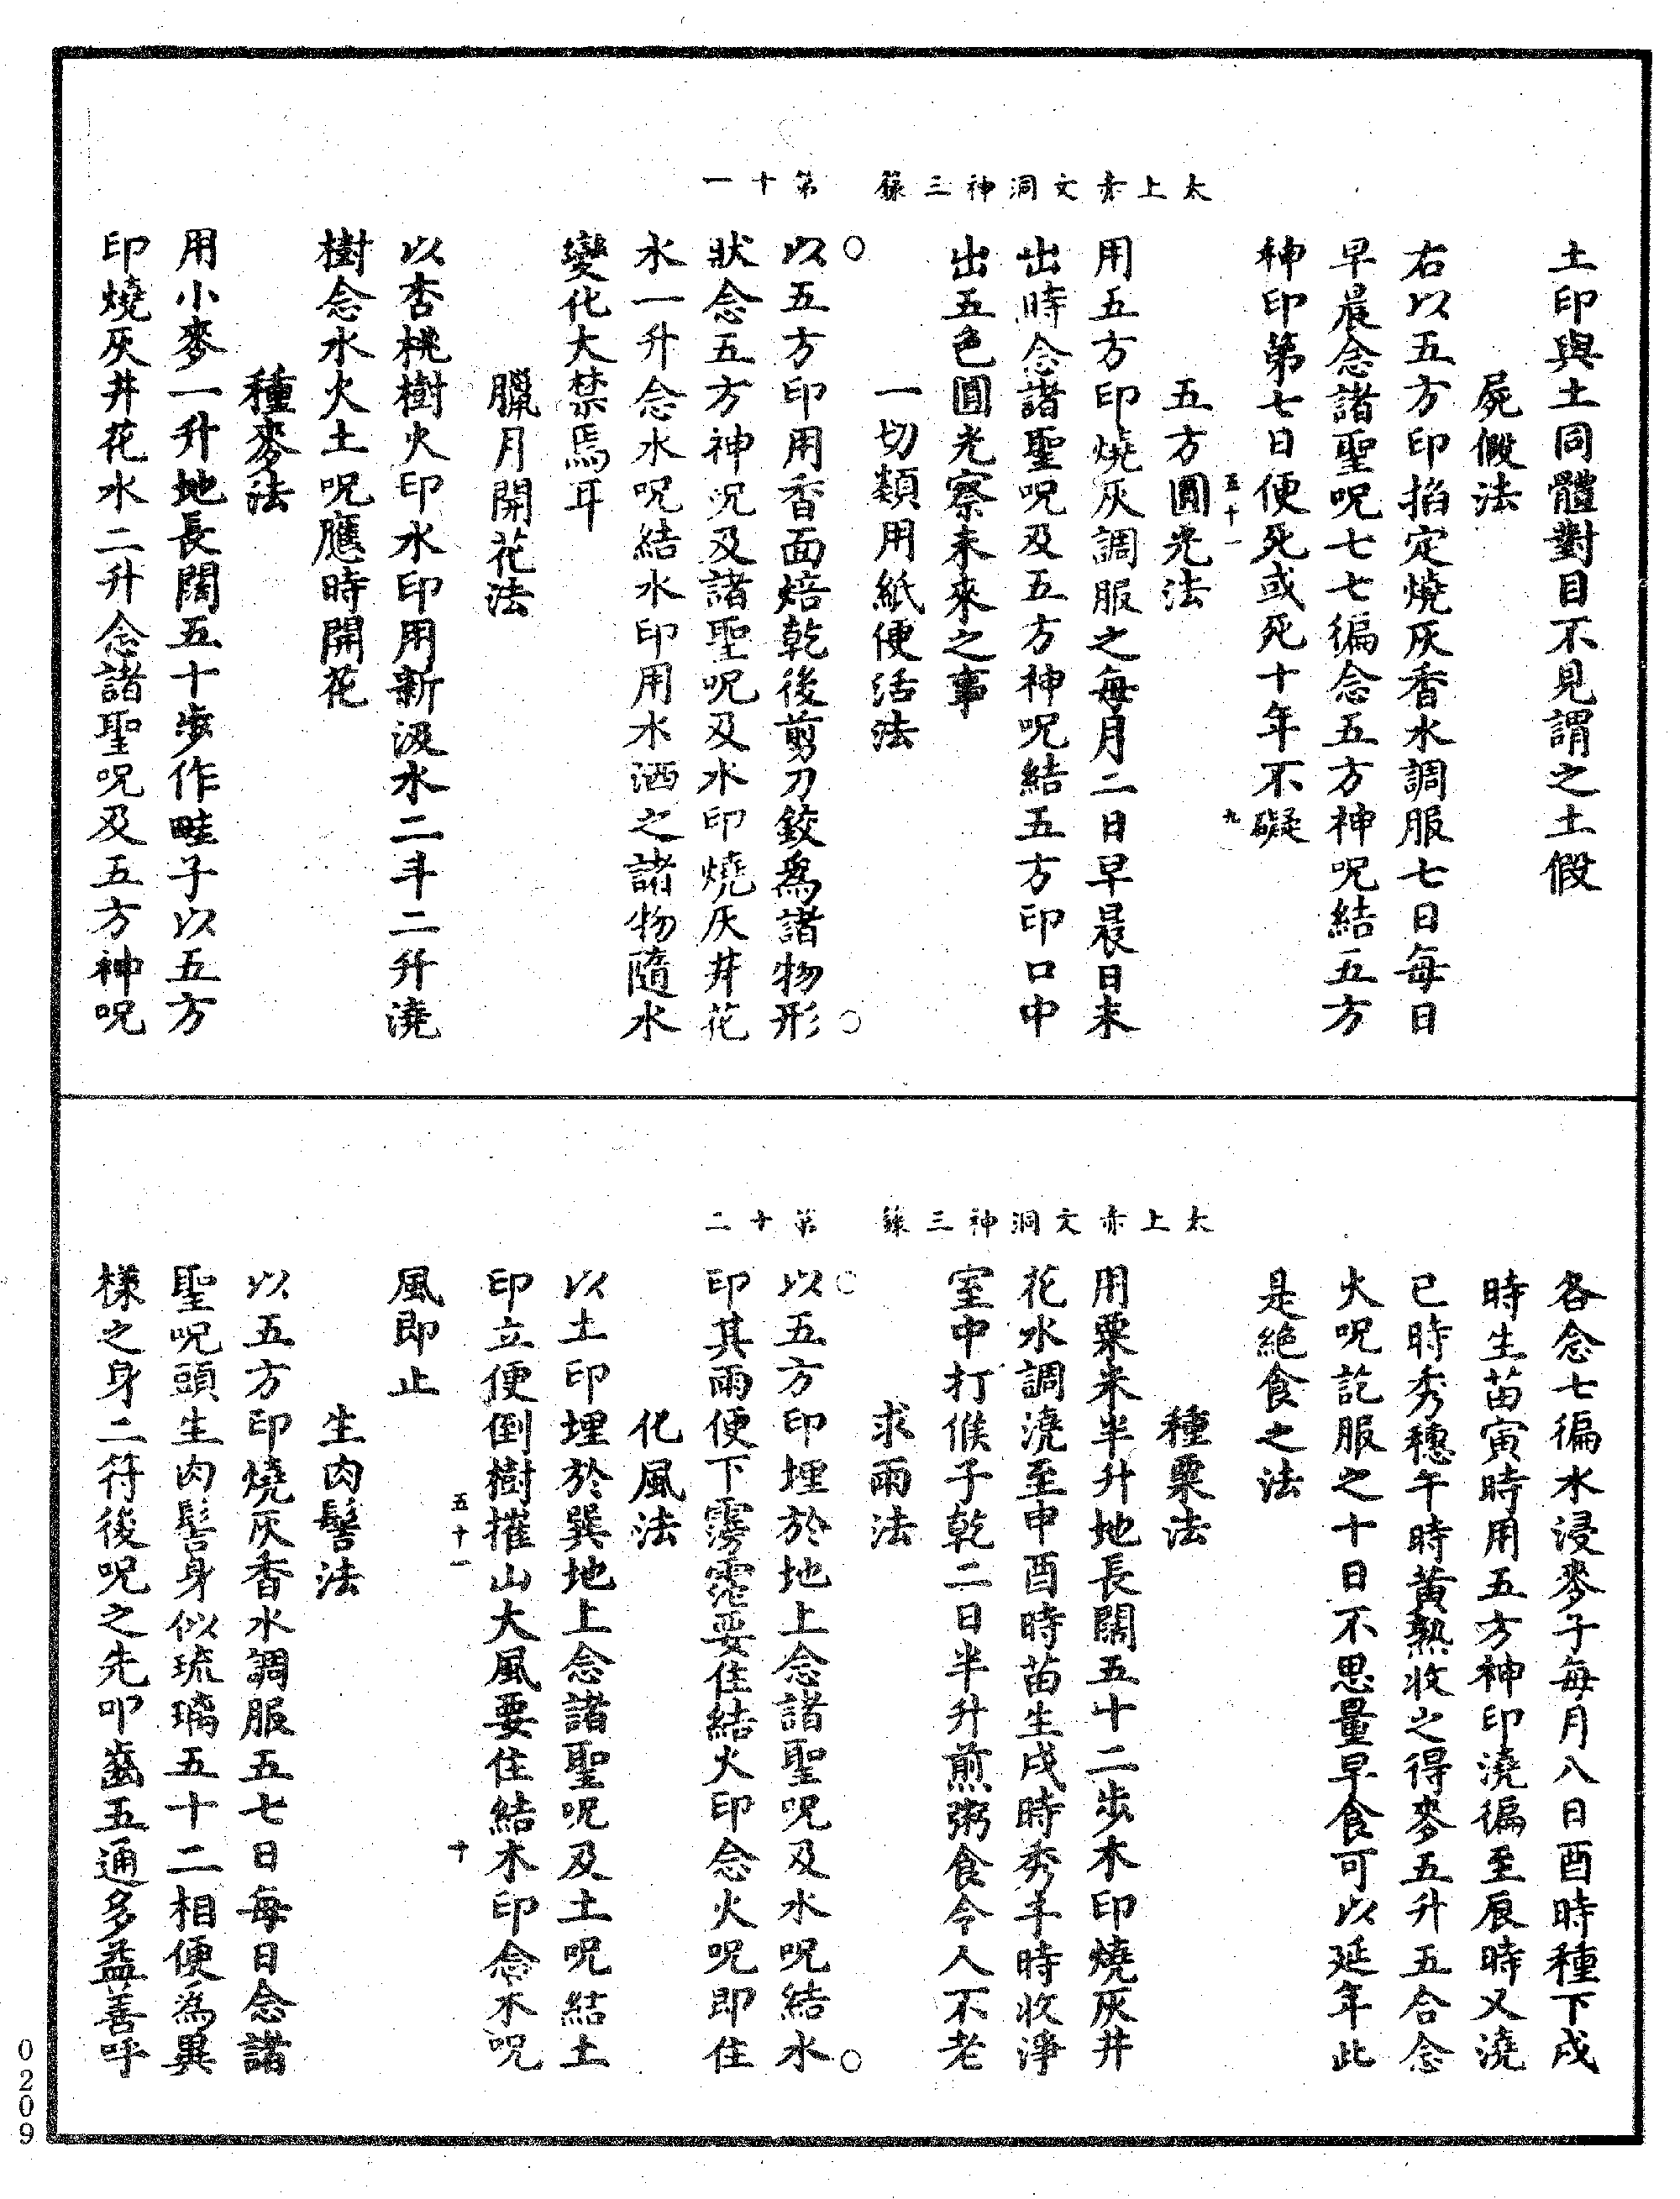 太上赤文洞神三籙　第十一
土印與土同體對目不見謂之土假
屍假法
右以五方印掐定燒灰香水調服七日每日
早晨念諸聖呪七七徧念五方神呪結五方
神印第七日便死或死十年不礙
五方圓光法
五十一　九
用五方印燒灰調服之每月二日早晨日未
出時念諸聖呪及五方神呪結五方印口中
出五色圓光察未來之事
一切類用紙便活法
以五方印用香面焙乾後剪刀鉸爲諸物形
狀念五方神呪及諸聖呪及水印燒灰井花
水一升念水呪結水印用水洒之諸物隨水
變化大禁焉耳
臘月開花法
以杏桃樹火印水印用新汲水二斗二升澆
樹念水火土呪應時開花
種麥法
用小麥一升地長闊五十步作畦子以五方
印燒灰井花水二升念諸聖呪及五方神呪
太上赤文洞神三籙　第十二
各念七徧水浸麥子每月八日酉時種下戌
時生苗寅時用五方神印澆徧至辰時又澆
巳時秀穗午時黄熟收之得麥五升五合念
火呪訖服之十日不思量早食可以延年此
是絶食之法
種粟法
用粟米半升地長闊五十二步木印燒灰井
花水調澆至申酉時苗生戌時秀羊時收淨
室中打候子乾二日半升煎粥食令人不老
求雨法
以五方印埋於地上念諸聖呪及水呪結水
印其雨便下霶霈要住結火印念火呪即住
化風法
以土印埋於巽地上念諸聖呪及土呪結土
印立便倒樹摧山大風要住結木印念木呪
五十一　十
風即止
生肉髻法
以五方印燒灰香水調服五七日每日念諸
聖呪頭生肉髻身似琉璃五十二相便為異
樣之身二符後呪之先叩齒五通多益善呼
0209